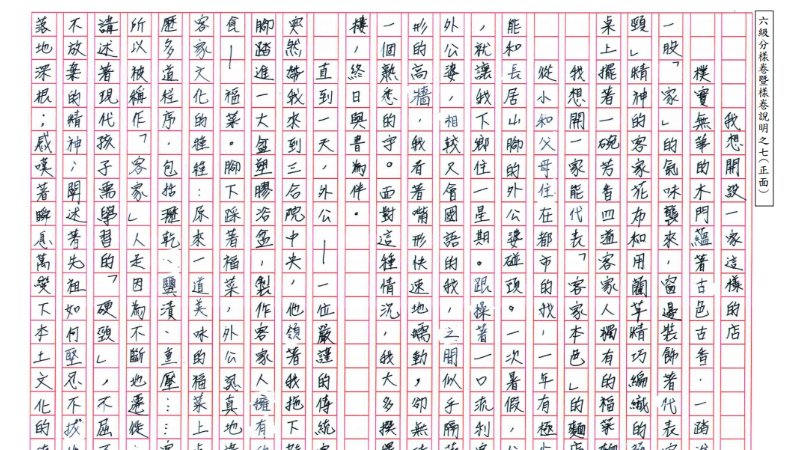 六級分樣卷暨樣卷說明之七(正面)
我想開設一家這樣的店
樸實無華的木門蘊著古色古香，一踏進
一股「家」的氣味襲來，窗邊裝飾著代表
頸」精神的客家花布和用藺草精巧編織的
桌上擺著一碗芳香四道客家人獨有的福菜麵
我想開一家能代表「客家本色」的麵店
從小和父母住在都市的我，一年有極少
能和長居山腳的外公婆碰頭。一次暑假，
，就讓我下鄉住一星期。跟操著一口流利
外公婆，相較又會國語的我，之間似乎隔
形的高牆，我看著嘴形快速地蠕動，卻無
一個熟悉的字。面對這種情況，我大多撰
樓，終日與書為伴。
直到一天，外公——一位嚴謹的傳統客
突然帶我來到三合院中央，他領著我拖下
腳踏進一大盆塑膠浴盆，製作客家人擁有
食——福菜。腳下踩著福菜，外公認真地
客家文化的種種：原來一道美味的福菜上
歷多道程序，包括瀝乾、鹽漬、重壓……客
所以被稱作「客家」人是因為不斷地遷徙：
講述著現代孩子需學習的「硬頸」，不屈不
不放棄的精神；闡述著先祖如何堅忍不拔
落地深根；感嘆著瞬息萬變下本土文化的